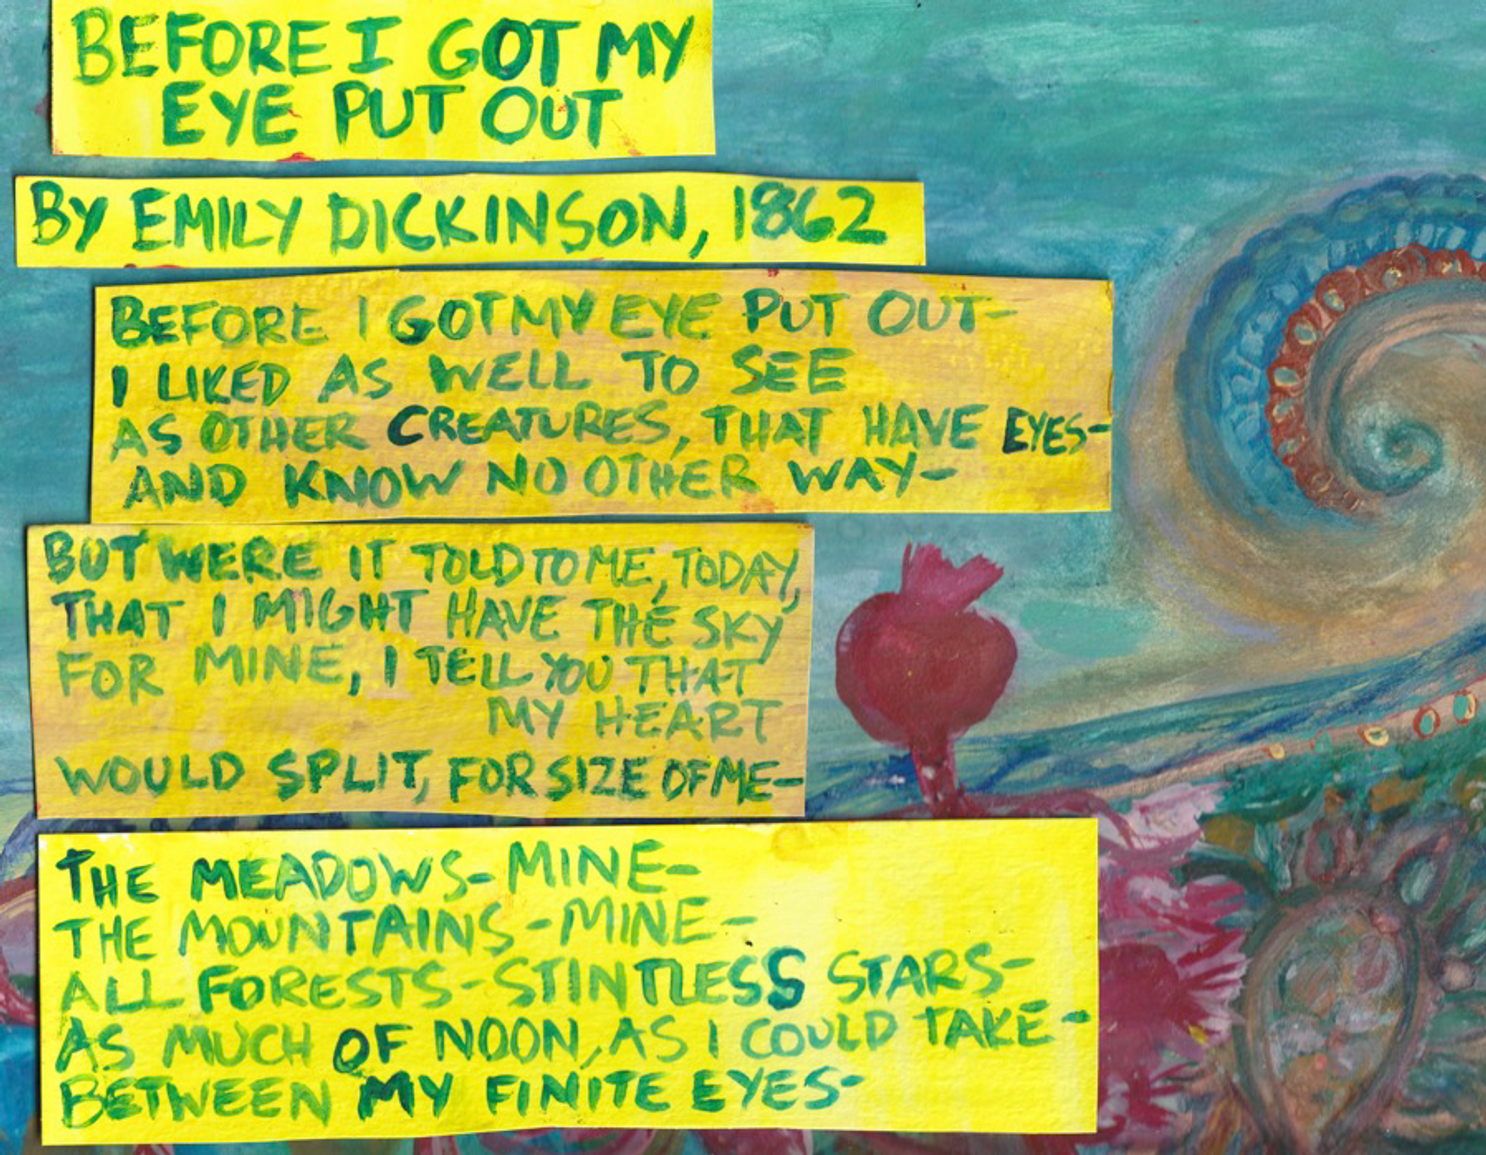 BEFORE I GOT MY
EYE PUT OUT
BY EMILY DICKINSON, 1862
BEFORE I GOT MY EYE PUT OUT-
I LIKED AS WELL TO SEE
AS OTHER CREATURES, THAT HAVE EYES-
AND KNOW NO OTHER WAY-
BUT WERE IT TOLD TO ME, TODAY,
THAT I MIGHT HAVE THE SKY
FOR MINE, I TELL YOU THAT
MY HEART
WOULD SPLIT, FOR SIZE OF ME-
THE MEADOWS-MINE-
THE MOUNTAINS-MINE-
ALL FORESTS-STINTLESS STARS-
AS MUCH OF NOON, AS I COULD TAKE-
BETWEEN MY FINITE EYES-